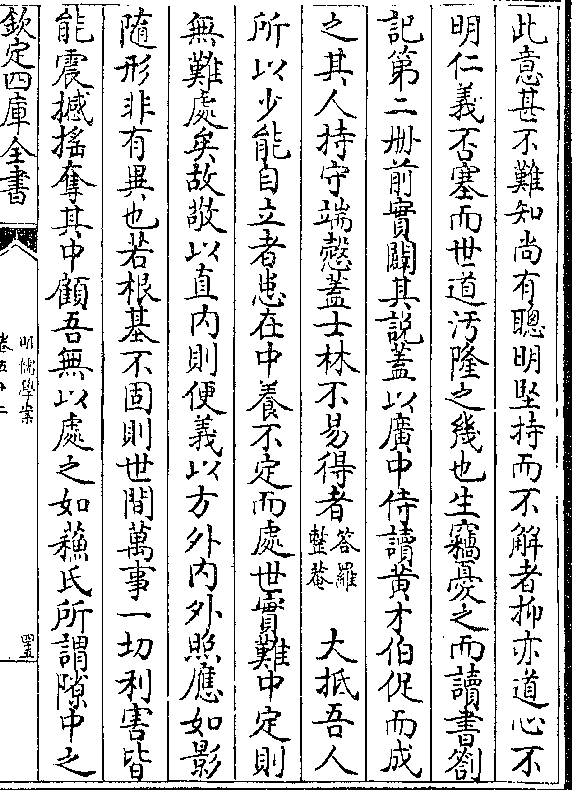 此意甚不難知尚有聰明堅持而不解者抑亦道心不
明仁義否塞而世道汚隆之幾也生竊憂之而讀書劄
記第二册前實闢其說蓋以廣中侍讀黄才伯促而成
之其人持守端慤蓋士林不易得者答羅整菴　大抵吾人
所以少能自立者患在中養不定而處世實難中定則
無難處矣故敬以直内則便義以方外内外照應如影
隨形非有異也若根基不固則世間萬事一切利害皆
能震撼揺奪其中顧吾無以處之如蘓氏所謂隙中之
欽定四庫全書
明儒學案
卷五十二